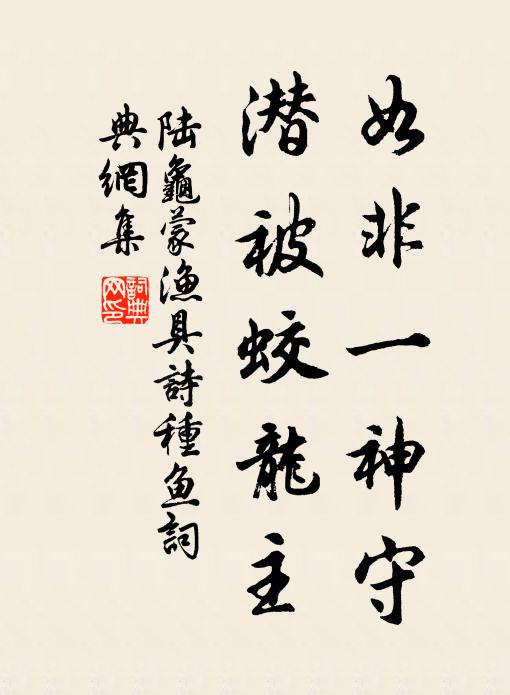 如非一神守
潜被蛟龍主
陆龜蒙渔具詩種鱼詞
典網集
詞典網印